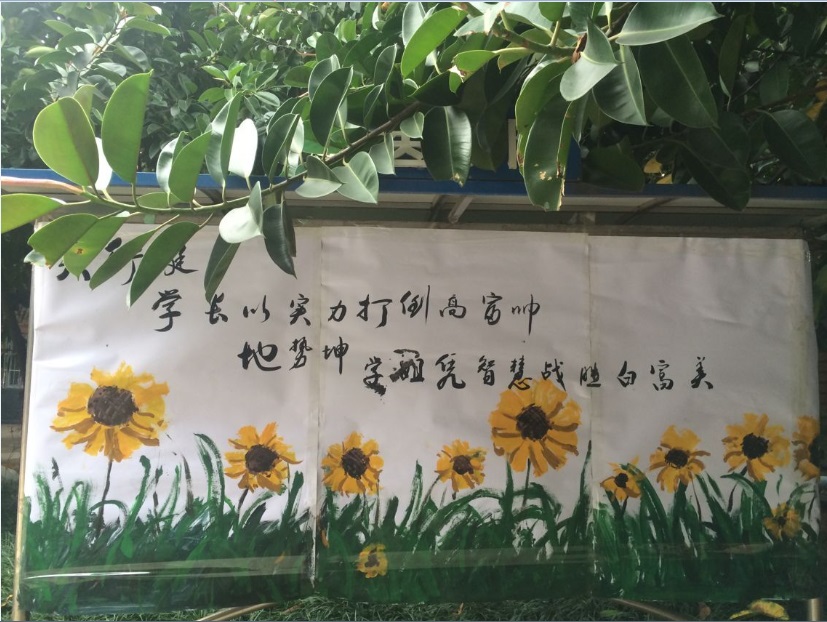 学长以实力打倒高富帅
地势坤
学姐凭智慧战胜白富美